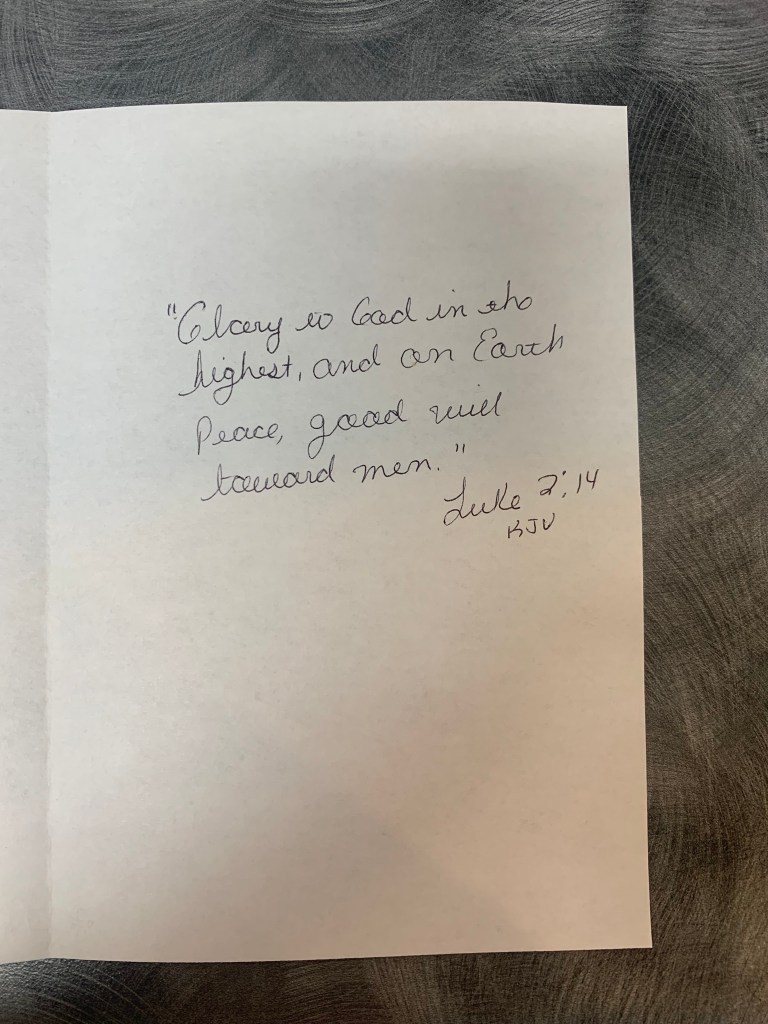 "Glory to God in the
highest, and on Earth
Peace, good will
toward men."
Luke 2:14
KJV